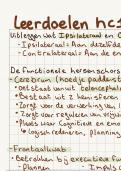 Leerdoelen hc1
Uitleggen wat Ipsilateraal en C
- Ipsilateraal = Aan dezelfde
- Contralateraal = Aan de
De functionele hersenschors
- Cerebrum (hoed je paddens
- Ontstaan vanuit telencephalo
- Bestaat uit 2 hemisferen
- Zorgt voor de verwerking van
- Zorgt voor reguleren van vrijwi
- Plaats waar cognitie en emo
↳ logisch redeneren, planning
- Frontaalkwab
- Betrokken bij executieve fu
- Plannen - Impuls